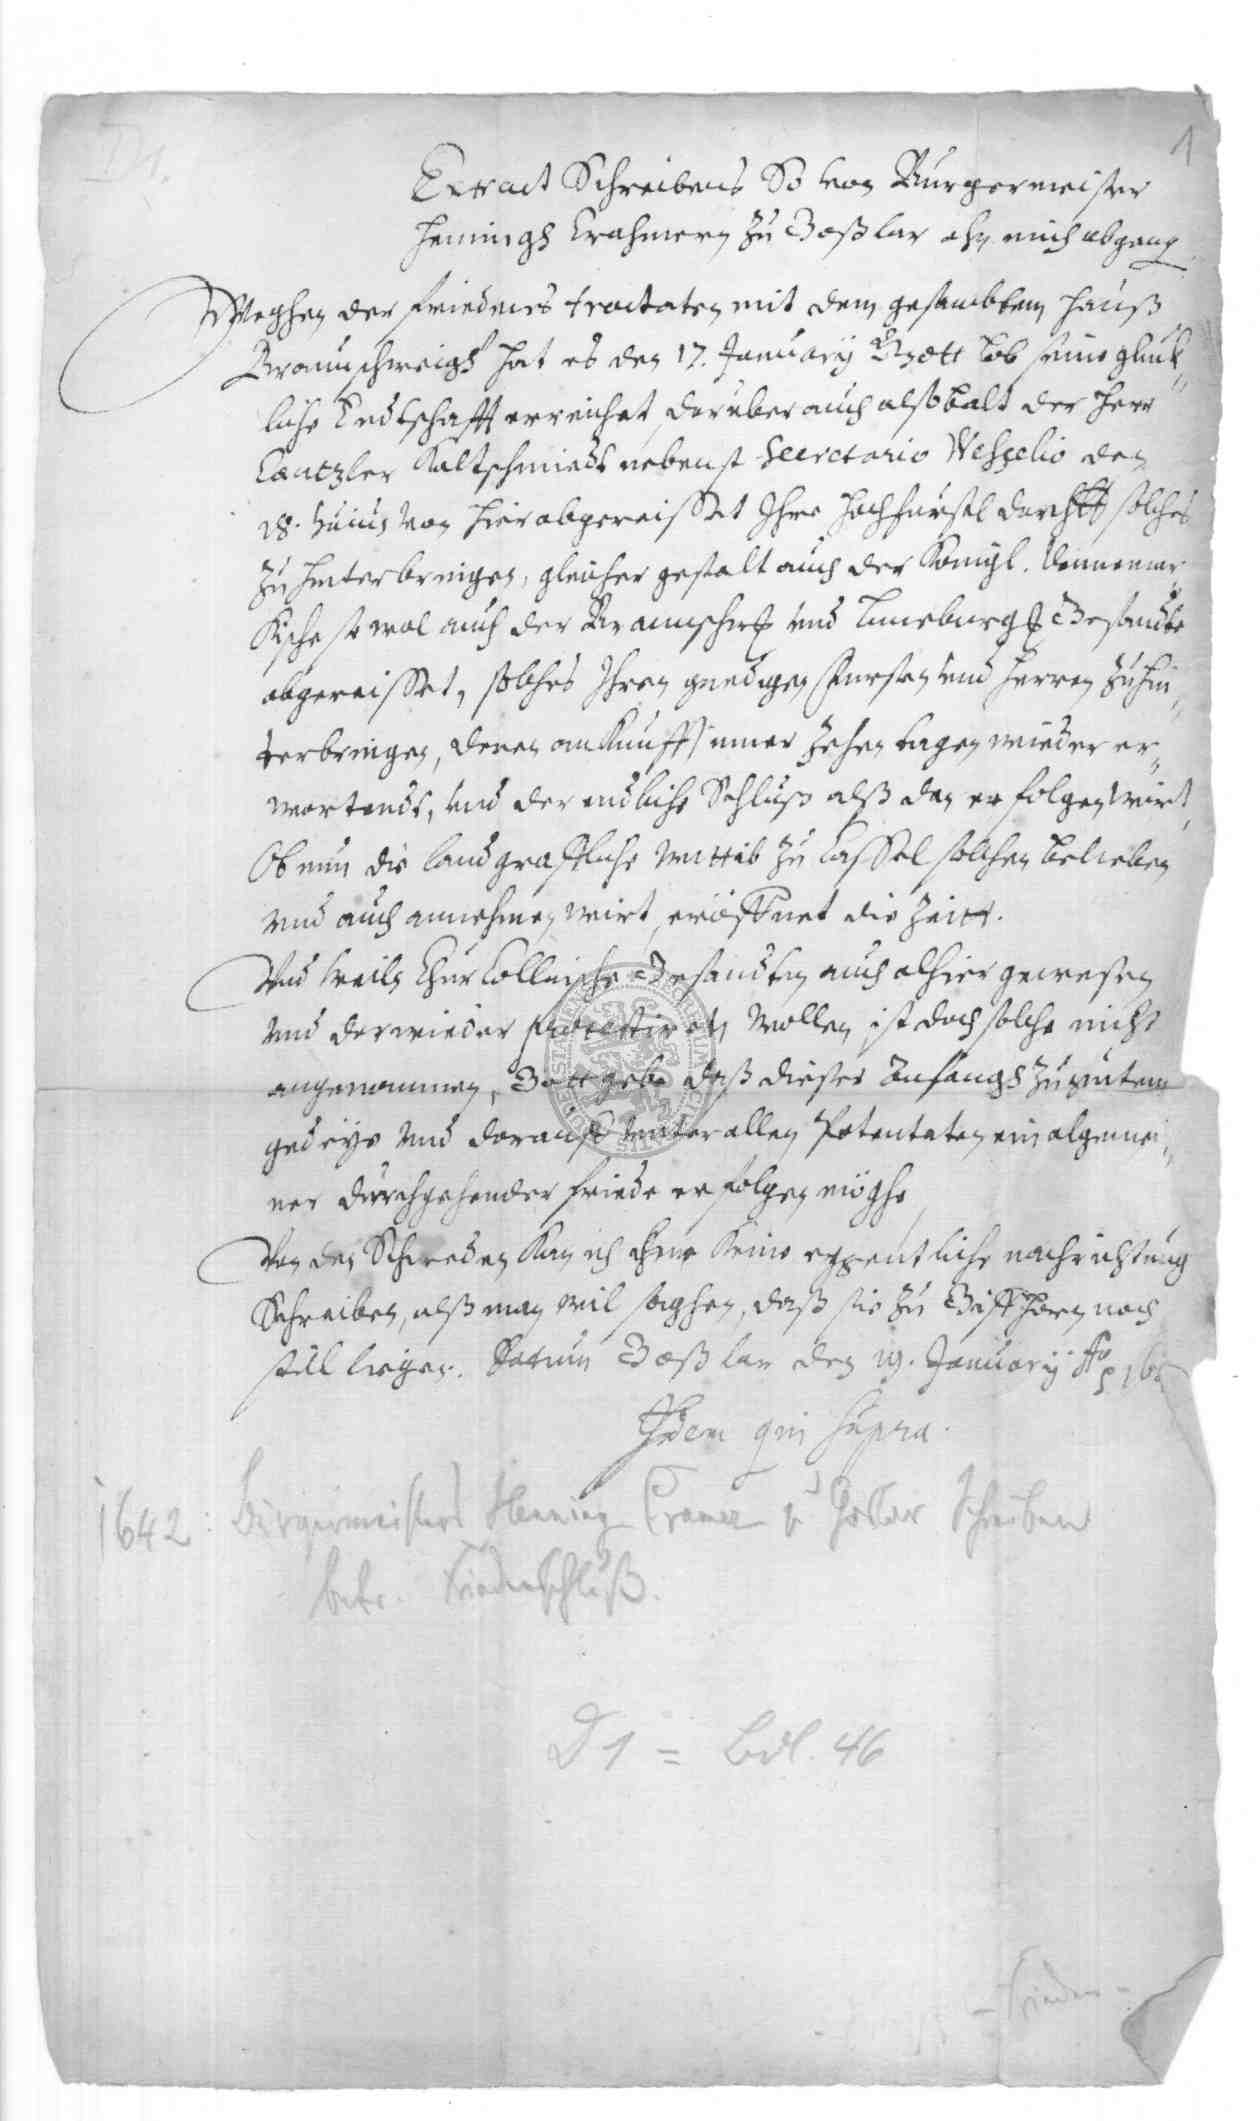 D1.
1
Extract Schreibens So von Burgermeister
Henningh Crahmern zu Goßlar ahn mich abgang
Weghen der friedens tractaten mit dem gesambtem Hauß
Braunschweigh hat es den 17. January Gott lob seine gluk„
liche Endtschafft erreichet, daruber auch alßbalt der Herr
Cantzler Kaltschmiedt nebenst Secretario den
18. huius von hier abgereisset Ihre Hochfurstl Durchll solches
zu hinterbringen, gleicher gestalt auch der Konigl. Dennemar„
kische so wol auch der Braunschw und Luneburg Gesandte
abgereisset, solches Ihren gnedigen Fursten und Herren zu hin„
terbringen, deren ankunfft inner zehen tagen wieder er„
wartendt, und der endliche Schluß alß dan erfolgen wirt,
Ob nun die landgraffliche Wittib zu Cassel solchen belieben
und auch annehmen wirt, eröffnet die Zeitt.
Und weiln Chur Collnische Gesandten auch alhier gewesen
und darwieder protestiren wollen, ist doch solche nicht
angenommen, Gott gebe daß dieses Anfangs zu gutem
gedeye und darauß unter allen Potentaten ein algemei„
ner durchgehender friede erfolgen möghe
Von den Schweden kan ich keine eygentliche nachrichtung
Schreiben, alß man wil saghen, daß sie zu Giffhorn noch
still liegen. Datum Goßlar den 19. January Ao 16
Idem qui supra.
1642: Bürgermeisters Henning Cramer z Goslar Schreiben
betr. Friedenschluß.
D1 = Bdl. 46
Frieden